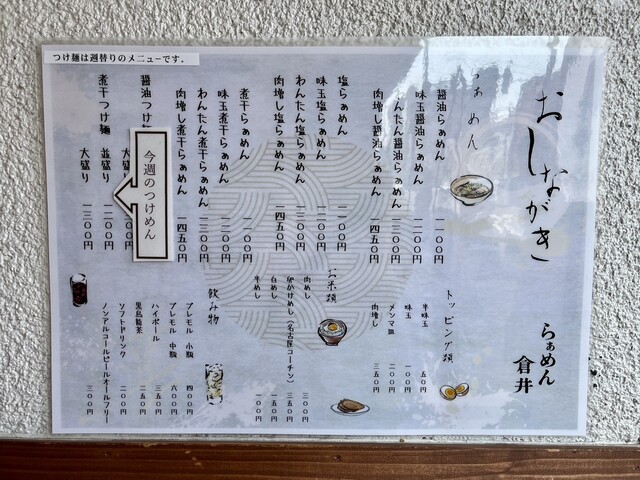 おしながき
らぁめん 倉井
らぁめん
醤油らぁめん 一一〇〇円
味玉醤油らぁめん 一二〇〇円
わんたん醤油らぁめん 一三〇〇円
肉増し醤油らぁめん 一四五〇円
塩らぁめん 一一〇〇円
味玉塩らぁめん 一二〇〇円
わんたん塩らぁめん 一三〇〇円
肉増し塩らぁめん 一四五〇円
煮干らぁめん 一一〇〇円
味玉煮干らぁめん 一二〇〇円
わんたん煮干らぁめん 一三〇〇円
肉増し煮干らぁめん 一四五〇円
つけ麺は週替りのメニューです。
今週のつけめん
醤油つけ
大盛り
煮干つけ麺 並盛り 一二〇〇円
大盛り 一三〇〇円
トッピング類
半味玉 五〇円
味玉 一〇〇円
メンマ増 二〇〇円
肉増し 三五〇円
お米類
肉めし 三〇〇円
卵かけめし(名古屋コーチン) 三五〇円
白めし 一五〇円
半めし 一〇〇円
飲み物
プレモル 小瓶 四〇〇円
プレモル 中瓶 六〇〇円
ハイボール 三五〇円
黒烏龍茶 二五〇円
ソフトドリンク 二〇〇円
ノンアルコールビールオールフリー 三〇〇円